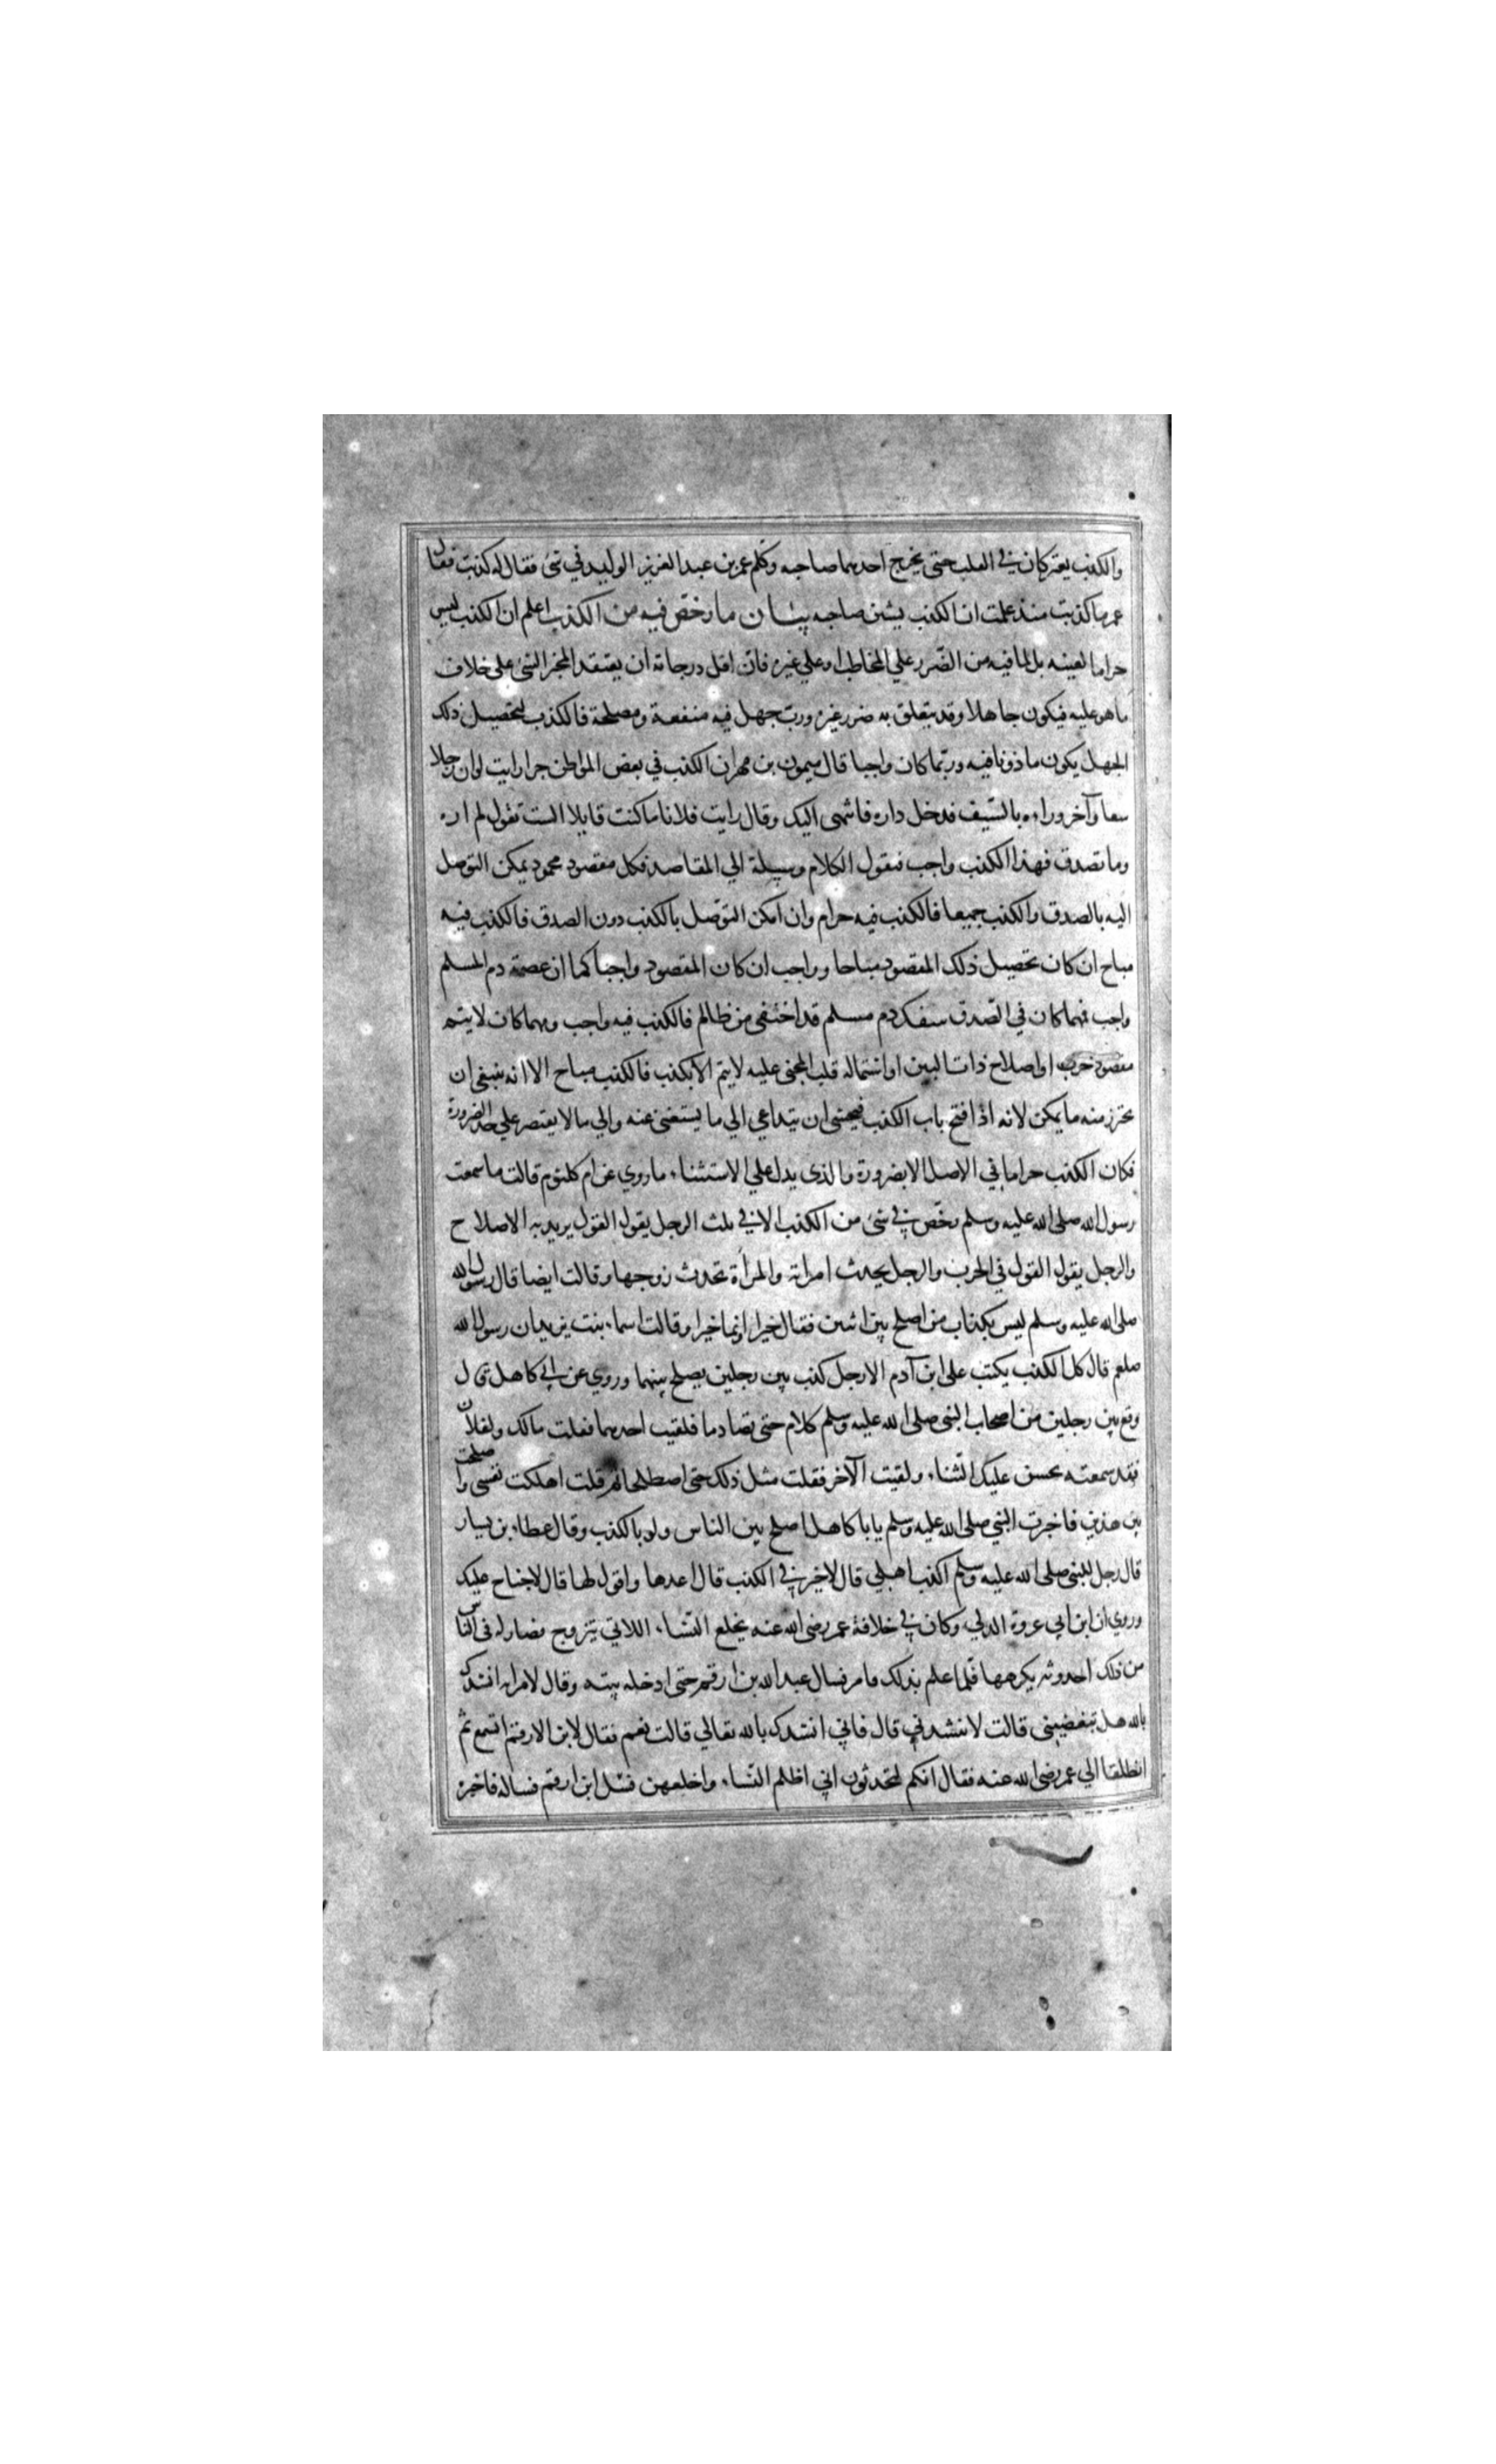 والكذب يعتركان في القلب حتى يخرج احدهما صاحبه وكلم عمر بن عبد العزيز الوليد في شئ فقال له كذبت فقال
عمر ما كذبت منذ علمت ان الكذب يشين صاحبه بيان ما رخص فيه من الكذب اعلم ان الكذب ليس
حراما لعينه بل لما فيه من الضّرر علي المخاطب او علي غيره فانّ اقل درجاته ان يعتقد المخبر الشئ علي خلاف
ما هو عليه فيكون جاهلا وقد يتعلق به ضرر غيره وربّ جهل فيه منفعة ومصلحة فالكذب لتحصيل ذلك
الجهل يكون ماذونا فيه وربّما كان واجبا قال ميمون بن مهران الكذب في بعض المواطن خير ارايت لو ان رجلا
سعا وآخر وراءه بالسّيف فدخل داره فانتهى اليك وقال رايت فلانا ما كنت قايلا الست تقول لم اره
وما تصدق فهذا الكذب واجب فنقول الكلام وسيلة الي المقاصد فكل مقصود محمود يمكن التوصل
اليه بالصدق والكذب جميعا فالكذب فيه حرام وان امكن التوصّل بالكذب دون الصدق فالكذب فيه
مباح ان كان تحصيل ذلك المقصود مباحا وواجب ان كان المقصود واجبا كما ان عصمة دم المسلم
واجب فهما كان في الصّدق سفك دم مسلم قد اختفى من ظالم فالكذب فيه واجب ومهما كان لا يتم
مقصود حرب او اصلاح ذات البين او استماله قلب المجنى عليه لا يتم الا بكذب فالكذب مباح الا انه ينبغي ان
يحترز منه ما يمكن لانه اذا فتح باب الكذب فيخشى ان يتداعي الي ما يستغنى عنه والي ما لا يقتصر علي حد الضرورة
فكان الكذب حراما في الاصل الا بضرورة والذى يدل علي الاستثناء ما روي عن ام كلثوم قالت ما سمعت
رسول الله صلى الله عليه وسلم رخّص في شئ من الكذب الا في ثلث الرجل يقول القول يريد به الاصلاح
والرجل يقول القول في الحرب والرجل يحدث امراته والمراة تحدث زوجها وقالت ايضا قال رسول الله
صلى الله عليه وسلم ليس بكذاب من اصلح بين اثنين فقال خيرا او نما خيرا وقالت اسماء بنت يزيد ان رسول الله
صلعم قال كل الكذب يكتب على ابن آدم الا رجل كذب بين رجلين يصلح بينهما وروي عن ابي كاهل قال
وقع بين رجلين من اصحاب النبي صلى الله عليه وسلم كلام حتى تصادما فلقيت احدهما فقلت مالك ولفلان
فقد سمعته يحسن عليك الثّناء ولقيت الآخر فقلت مثل ذلك حتى اصطلحا ثم قلت اهلكت نفسي واصلحت
بين هذين فاخبرت النبي صلى الله عليه وسلم يا با كاهل اصلح بين الناس ولو بالكذب وقال عطاء بن يسار
قال رجل للنبي صلى الله عليه وسلم اكذب اهلي قال لا خير في الكذب قال اعدها واقول لها قال لا جناح عليك
وروي ان ابن ابي عروة الدلي وكان في خلافة عمر رضى الله عنه يخلع النّساء اللاتي يتزوج فصار له في الناس
من ذلك احدوثه يكرهها فلما علم بذلك قام فسال عبد الله بن ارقم حتى ادخله بيته وقال لامراته انشدك
بالله هل تبغضيني قالت لا تنشدني قال فاني انشدك بالله تعالي قالت نعم فقال لابن الارقم اتسمع ثم
انطلقا الي عمر رضى الله عنه فقال انكم لتحدثون اني اظلم النّساء واخلعهن فسل ابن ارقم فساله فاخبره